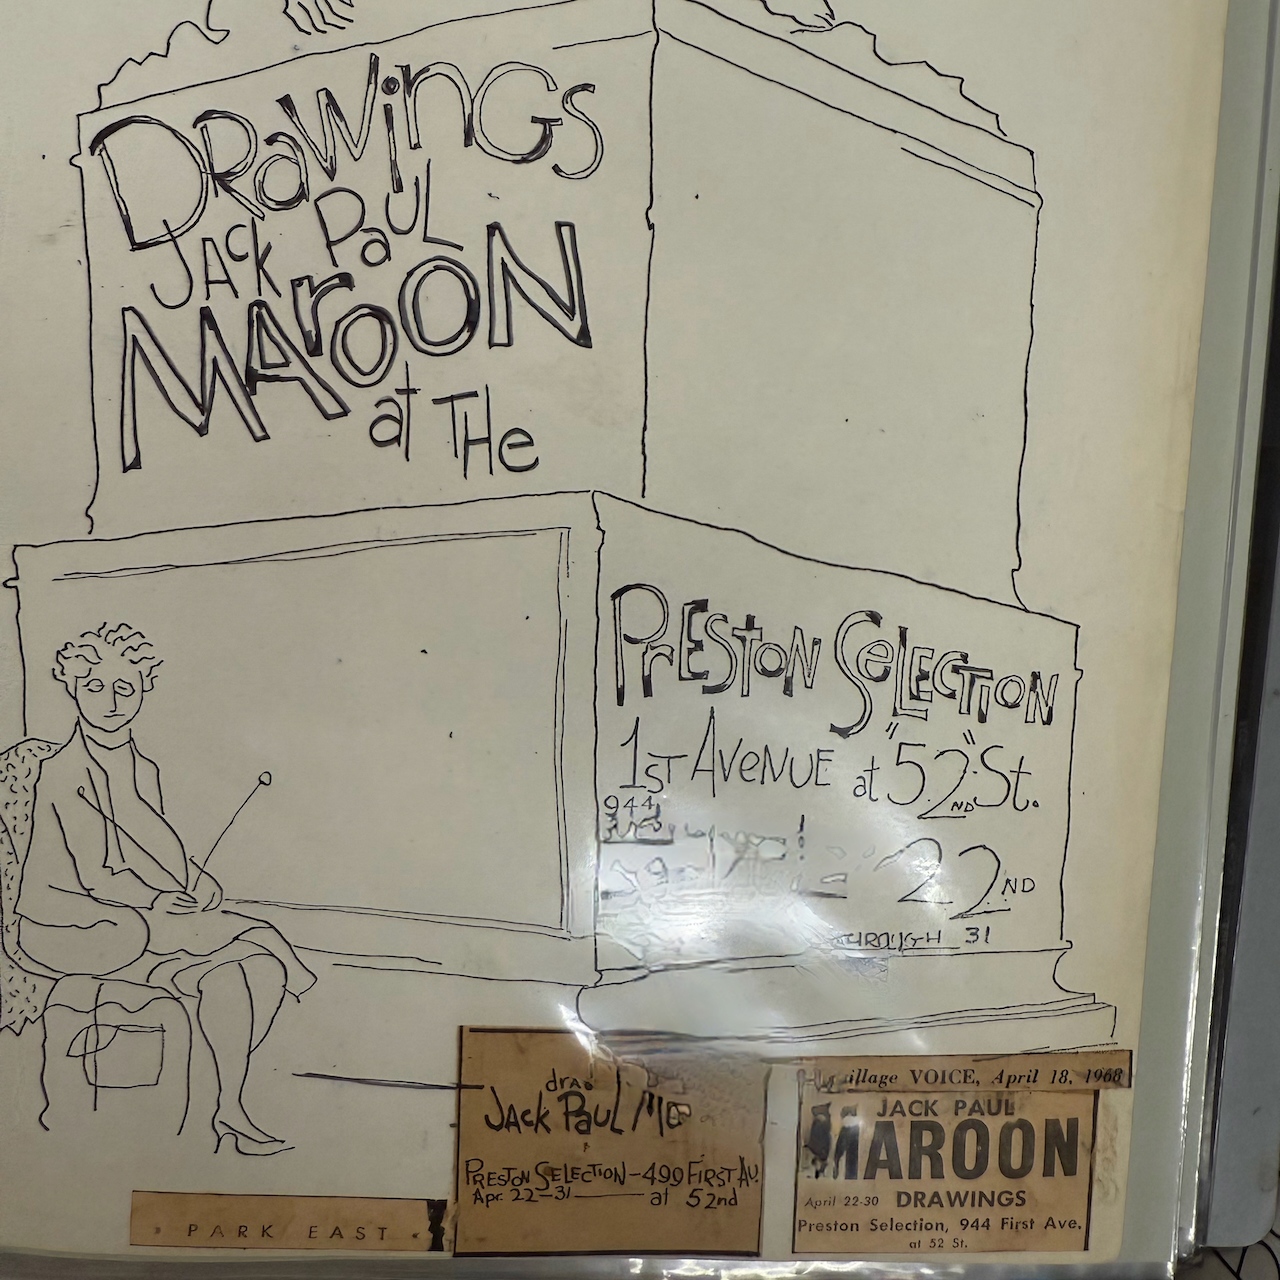 DRawings
JAck PaUL
MAroON
at THe
PrESToN SeLECTION
1ST AVeNUE at "52"ND St.
944
22ND
THROUGH 31
JACK PaUL
PRESToN SELECTION - 499 FIRST AV.
Apr. 22-31 at 52nd
PARK EAST
Village VOICE, April 18, 1968
JACK PAUL
MAROON
April 22-30 DRAWINGS
Preston Selection, 944 First Ave.
at 52 St.